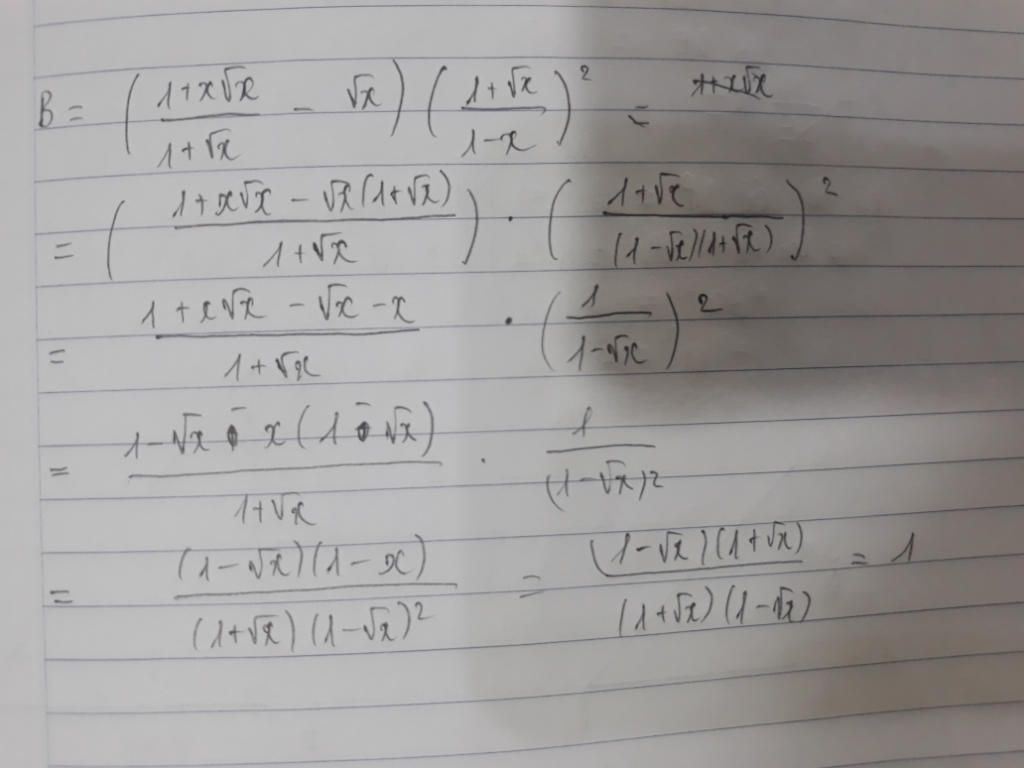 B = ( (1+x√x)/(1+√x) − √x ) ( (1+√x)/(1−x) )² =
= ( (1+x√x − √x(1+√x))/(1+√x) ) · ( (1+√x)/((1−√x)(1+√x)) )²
= (1+x√x −√x −x)/(1+√x) · ( 1/(1−√x) )²
= (1−√x − x(1 − √x))/(1+√x) · 1/(1−√x)²
= ((1−√x)(1−x))/((1+√x)(1−√x)²) = ((1−√x)(1+√x))/((1+√x)(1−√x)) = 1